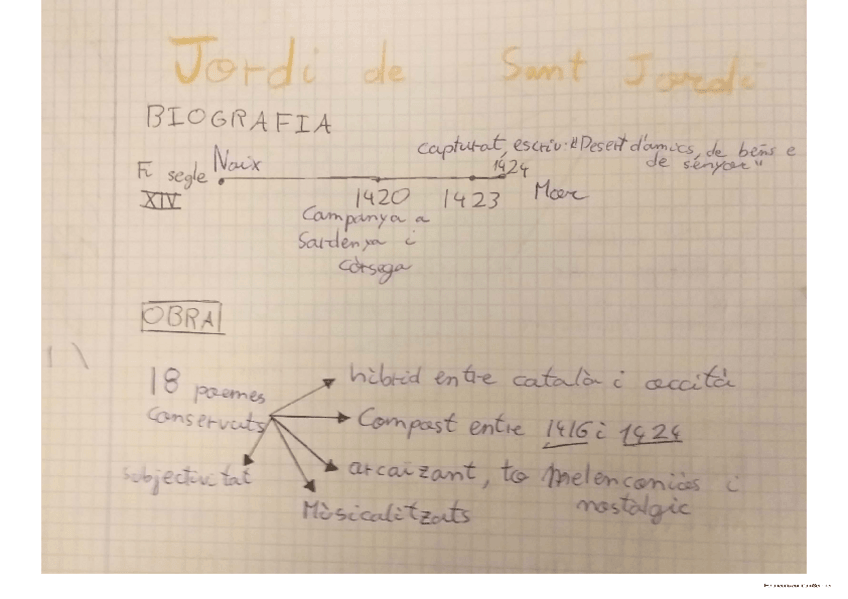 Jordi de Sant Jordi
BIOGRAFIA
capturat, escriu: "Desert d'amics, de bens e
de senyor"
Fi segle
XIV
Naix
1420
1423
1424
Mor
Campanya a
Sardenya i
còrsega
OBRA
18 poemes
conservats
híbrid entre català i occità
Compost entre 1416 i 1424
arcaizant, to melenconiós i
nostàlgic
Mùsicalitzats
subjectivitat